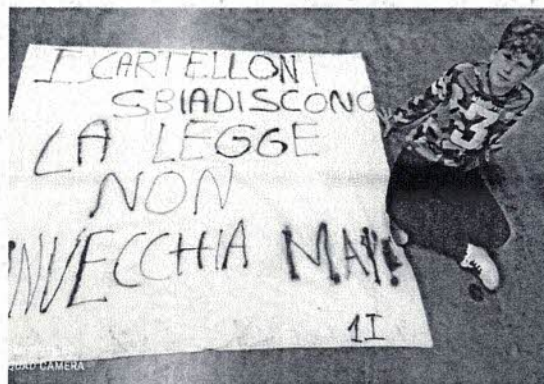 I CARTELLONI
SBIADISCONO
LA LEGGE
NON
INVECCHIA MAY!
1I
3
QUAD CAMERA